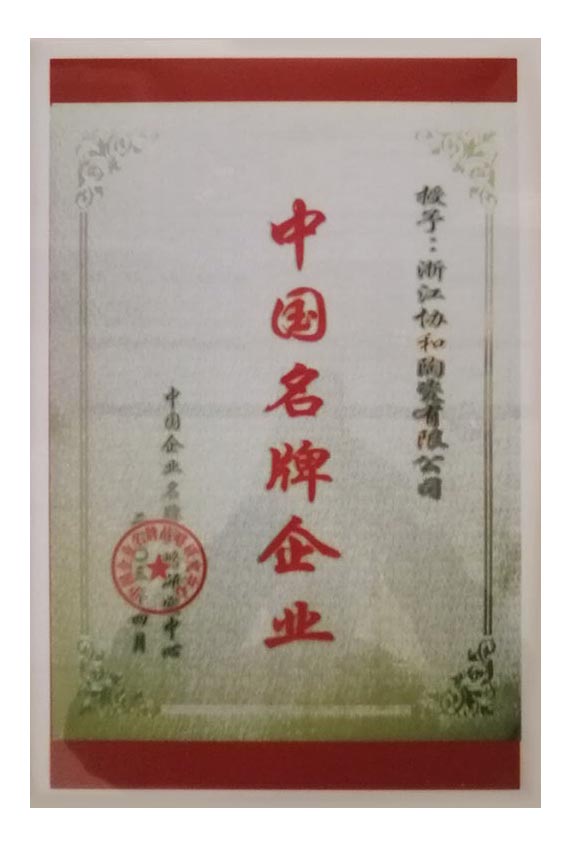 授予：浙江协和陶瓷有限公司
中国名牌企业
中国企业名牌战略研究中心
四月